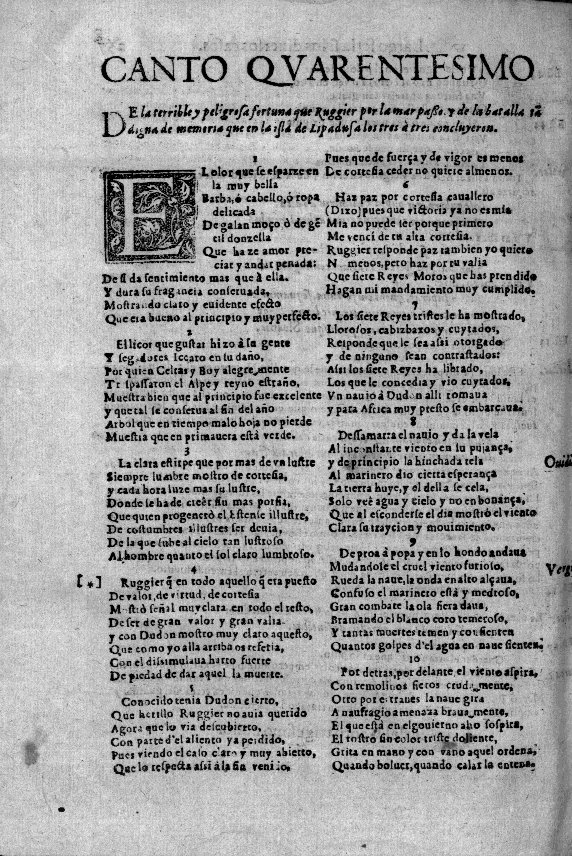 CANTO QVARENTESIMO
DE la terrible y peligrosa fortuna que Ruggier por la mar passo. y de la batalla tā
digna de memoria que en la isla de Lipadusa los tres à tres concluyeron.
1
EL olor que se esparze en
la muy bella
Barba, ó cabello, ó ropa
delicada
De galan moço ò de gē
til donzella
Que haze amor pre-
ciar y andar penada:
De si da sentimiento mas que à ella.
Y dura su fragancia conseruada,
Mostrando claro y euidente efecto
Que era bueno al principio y muy perfecto.
2
El licor que gustar hizo à su gente
Y segadores Iccaro en su daño,
Por quien Celtas y Boy alegremente
Traspassaron el Alpe y reyno estraño,
Muestra bien que al principio fue excelente
Y que tal se conserua al fin del año
Arbol que en tiempo malo hoja no pierde
Muestra que en primauera està verde.
3
La clara estirpe que por mas de vn lustre
Siempre lumbre mostro de cortesia,
Y cada hora luze mas su lustre,
Donde se ha de creer sin mas porfia,
Que quien progenerò el Estense illustre,
De costumbres illustres ser deuia,
De la que sube al cielo tan lustroso
Al hombre quanto el sol claro lumbroso.
4
[*] Ruggier q̃ en todo aquello q̃ era puesto
De valor, de virtud, de cortesia
Mostrò señal muy clara en todo el resto,
De ser de gran valor y gran valia.
y con Dudon mostro muy claro aquesto,
Que como yo alla arriba os referia,
Con el dissimulaua harto fuerte
De piedad de dar aquel la muerte.
5
Conocido tenia Dudon cierto,
Que herillo Ruggier no auia querido
Agora que lo via descubierto,
Con parte d'el aliento ya perdido,
Pues viendo el caso claro y muy abierto,
Que lo respecta assi à la fin venido,
Pues que de fuerça y de vigor es menos
De cortesia ceder no quiere almenos.
6
Haz paz por cortesia cauallero
(Dixo) pues que victoria ya no es mia
Mia no puede ser porque primero
Me venci de tu alta cortesia.
Ruggier responde paz tambien yo quiero
No menos, pero haz por tu valia
Que siete Reyes Moros que has prendido
Hagan mi mandamiento muy cumplido.
7
Los siete Reyes tristes le ha mostrado,
Llorosos, cabizbaxos y cuytados,
Responde que le sea assi otorgado
y de ninguno sean contrastados:
Assi los siete Reyes ha librado,
Los que le concedia y vio cuytados,
Vn nauio à Dudon alli tomaua
y para Africa muy presto se embarcaua.
8
Dessamarra el nauio y da la vela
Al inconstante viento en su pujança,
y de principio la hinchada tela
Al marinero dio cierta esperança
La tierra huye, y el della se cela,
Solo vee agua y cielo y no en bonança,
Que al esconderse el dia mostrò el viento
Clara su traycion y mouimiento.
Ouid
9
De proa à popa y en lo hondo andaua
Mudandose el cruel viento furioso,
Rueda la naue, la onda en alto alçaua,
Confuso el marinero està y medroso,
Gran combate la ola fiera daua,
Bramando el blanco coro temeroso,
Y tantas muertes temen y consienten
Quantos golpes d'el agua en naue sienten.
Verg
10
Por detras, por delante el viento aspira,
Con remolinos fieros crudamente,
Otro por el traues la naue gira
A naufragio amenaza brauamente,
El que està en el gouierno aho sospira,
El rostro sin color triste doliente,
Grita en mano y con vano aquel ordena,
Quando boluer, quando calar la entena.